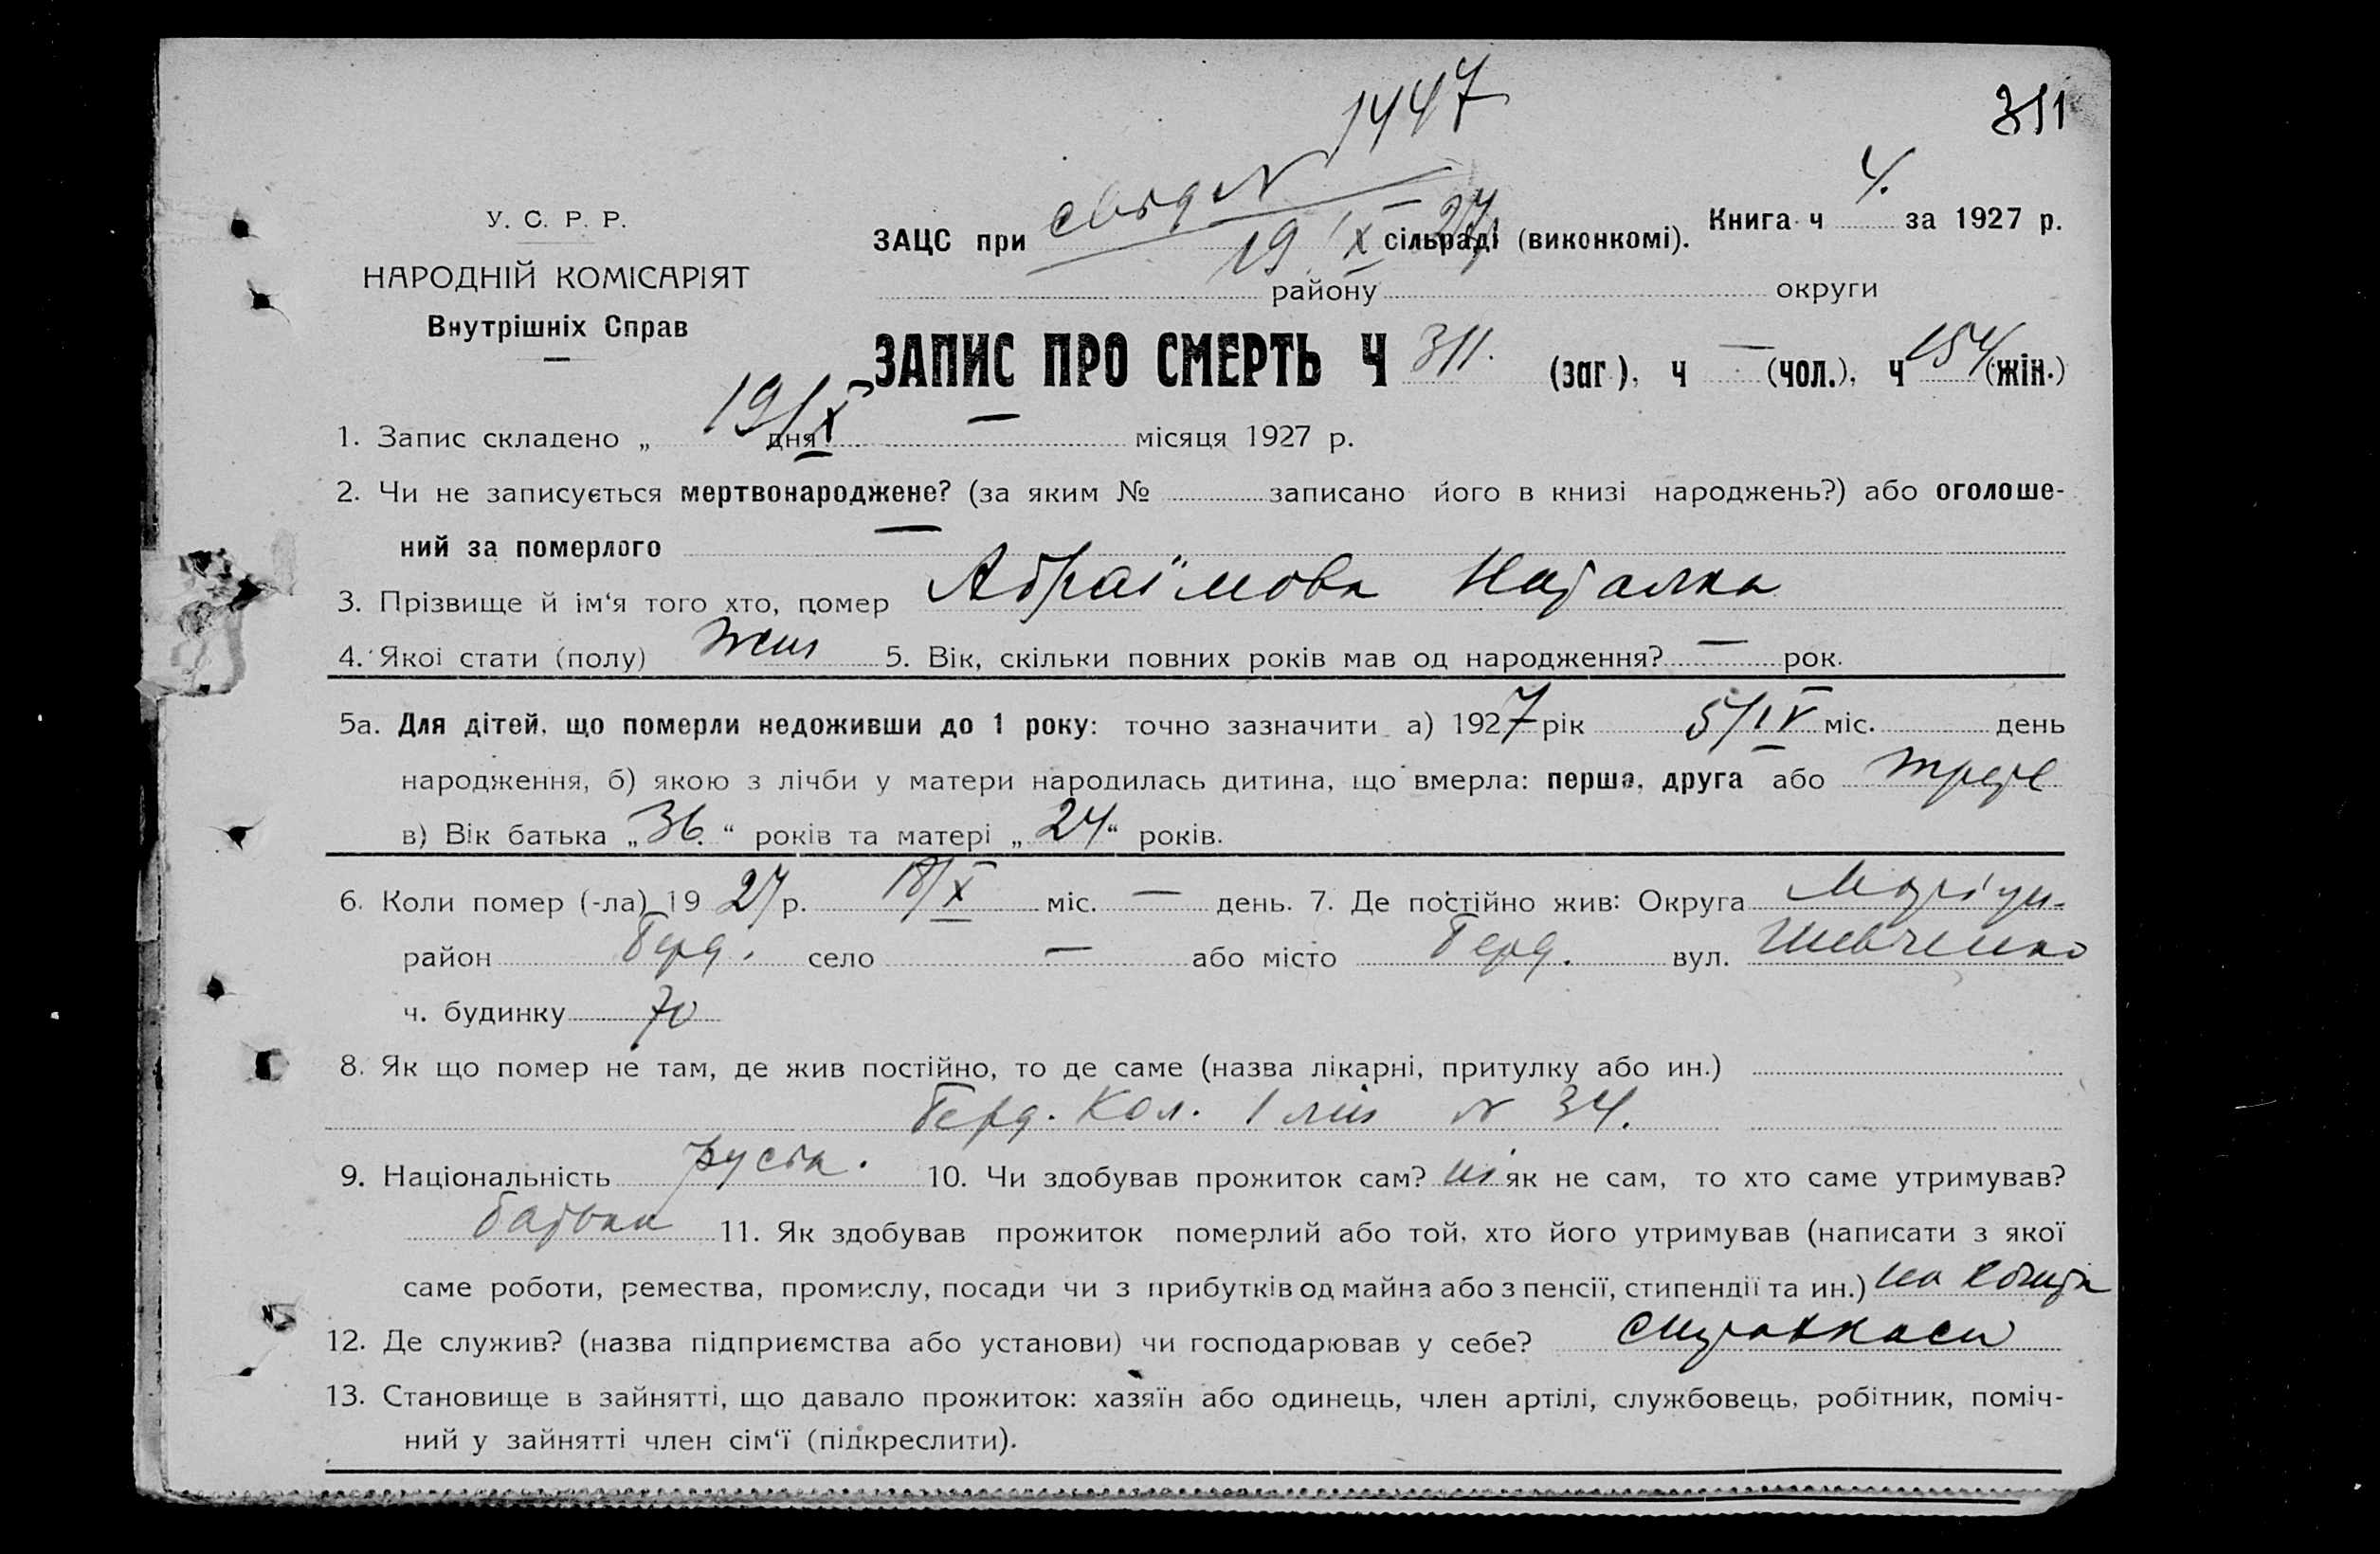 1447
311
свід N
У. С. Р. Р.
НАРОДНІЙ КОМІСАРІЯТ
Внутрішніх Справ
ЗАЦС при 19/X 27 сільраді (виконкомі). Книга ч 4. за 1927 р.
району округи
ЗАПИС ПРО СМЕРТЬ Ч 311. (заг.), ч — (чол.), ч 154 (жін.)
1. Запис складено „ 19/X дня — місяця 1927 р.
2. Чи не записується мертвонароджене? (за яким № записано його в книзі народжень?) або оголоше-
ний за померлого —
3. Прізвище й ім‘я того хто, помер Абраїмова Наталка
4. Якої стати (полу) жін 5. Вік, скільки повних років мав од народження? — рок.
5а. Для дітей, що померли недоживши до 1 року: точно зазначити а) 1927 рік 5/IV міс. день
народження, б) якою з лічби у матери народилась дитина, що вмерла: перша, друга або трете
в) Вік батька „36.“ років та матері „24“ років.
6. Коли помер (-ла) 1927 р. 18/X міс. — день. 7. Де постійно жив: Округа Маріуп.
район Берд. село — або місто Берд. вул. Шевченко
ч. будинку 70
8. Як що помер не там, де жив постійно, то де саме (назва лікарні, притулку або ин.)
Берд. Кол. 1 лін N 34.
9. Національність руська. 10. Чи здобував прожиток сам? ні як не сам, то хто саме утримував?
батьки 11. Як здобував прожиток померлий або той, хто його утримував (написати з якої
саме роботи, ремества, промислу, посади чи з прибутків од майна або з пенсії, стипендії та ин.) на кошти
12. Де служив? (назва підприємства або установи) чи господарював у себе? страхкаси
13. Становище в зайнятті, що давало прожиток: хазяїн або одинець, член артілі, службовець, робітник, поміч-
ний у зайнятті член сім‘ї (підкреслити).